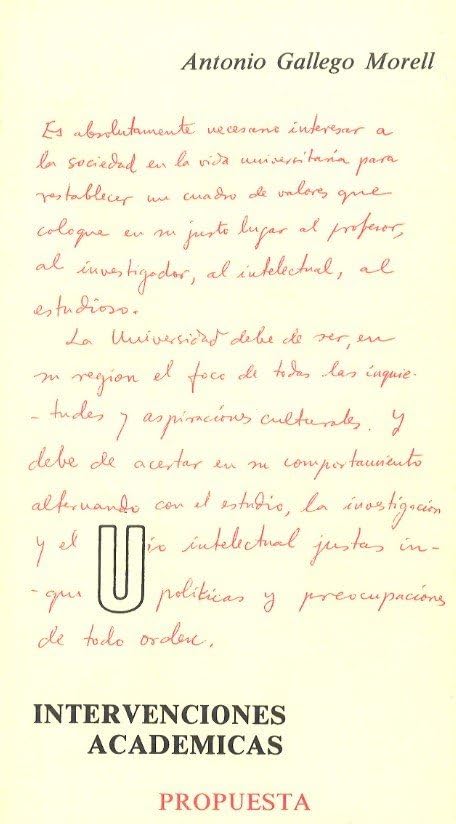 Antonio Gallego Morell
Es absolutamente necesario interesar a
la sociedad en la vida universitaria para
restablecer un cuadro de valores que
coloque en su justo lugar al profesor,
al investigador, al intelectual, al
estudioso.
La Universidad debe de ser, en
su region el foco de todas las inquie-
-tudes y aspiraciones culturales. Y
debe de acertar en su comportamiento
alternando con el estudio, la investigación
y el U io intelectual justas in-
-qui politicas y preocupaciones
de todo orden.
INTERVENCIONES
ACADEMICAS
PROPUESTA